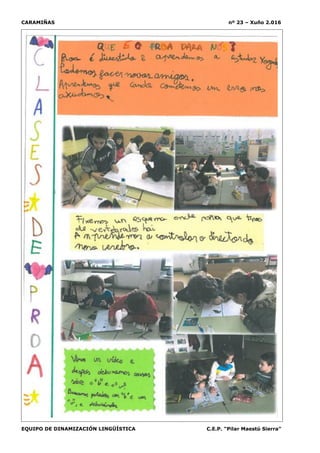 CARAMIÑAS
nº 23 – Xuño 2.016
CLASES DE PROA
QUE É O PROA PARA NÓS?
Proa é divertido e aprendemos a estudar
Podemos facer novas amigos.
Aprendemos que cando cometemos un erro nos
axudamos.
Fixemos un esquema onde poñía que tipos
de vertebrados hai
Aprendemos a controlar o
noso cerebro.
Vimos un vídeo e
despois debuxamos cousas
sobre o "b" e o "v"
Buscamos palabras con "b" e con
"v", e
EQUIPO DE DINAMIZACIÓN LINGÜÍSTICA
C.E.P. "Pilar Maestú Sierra"